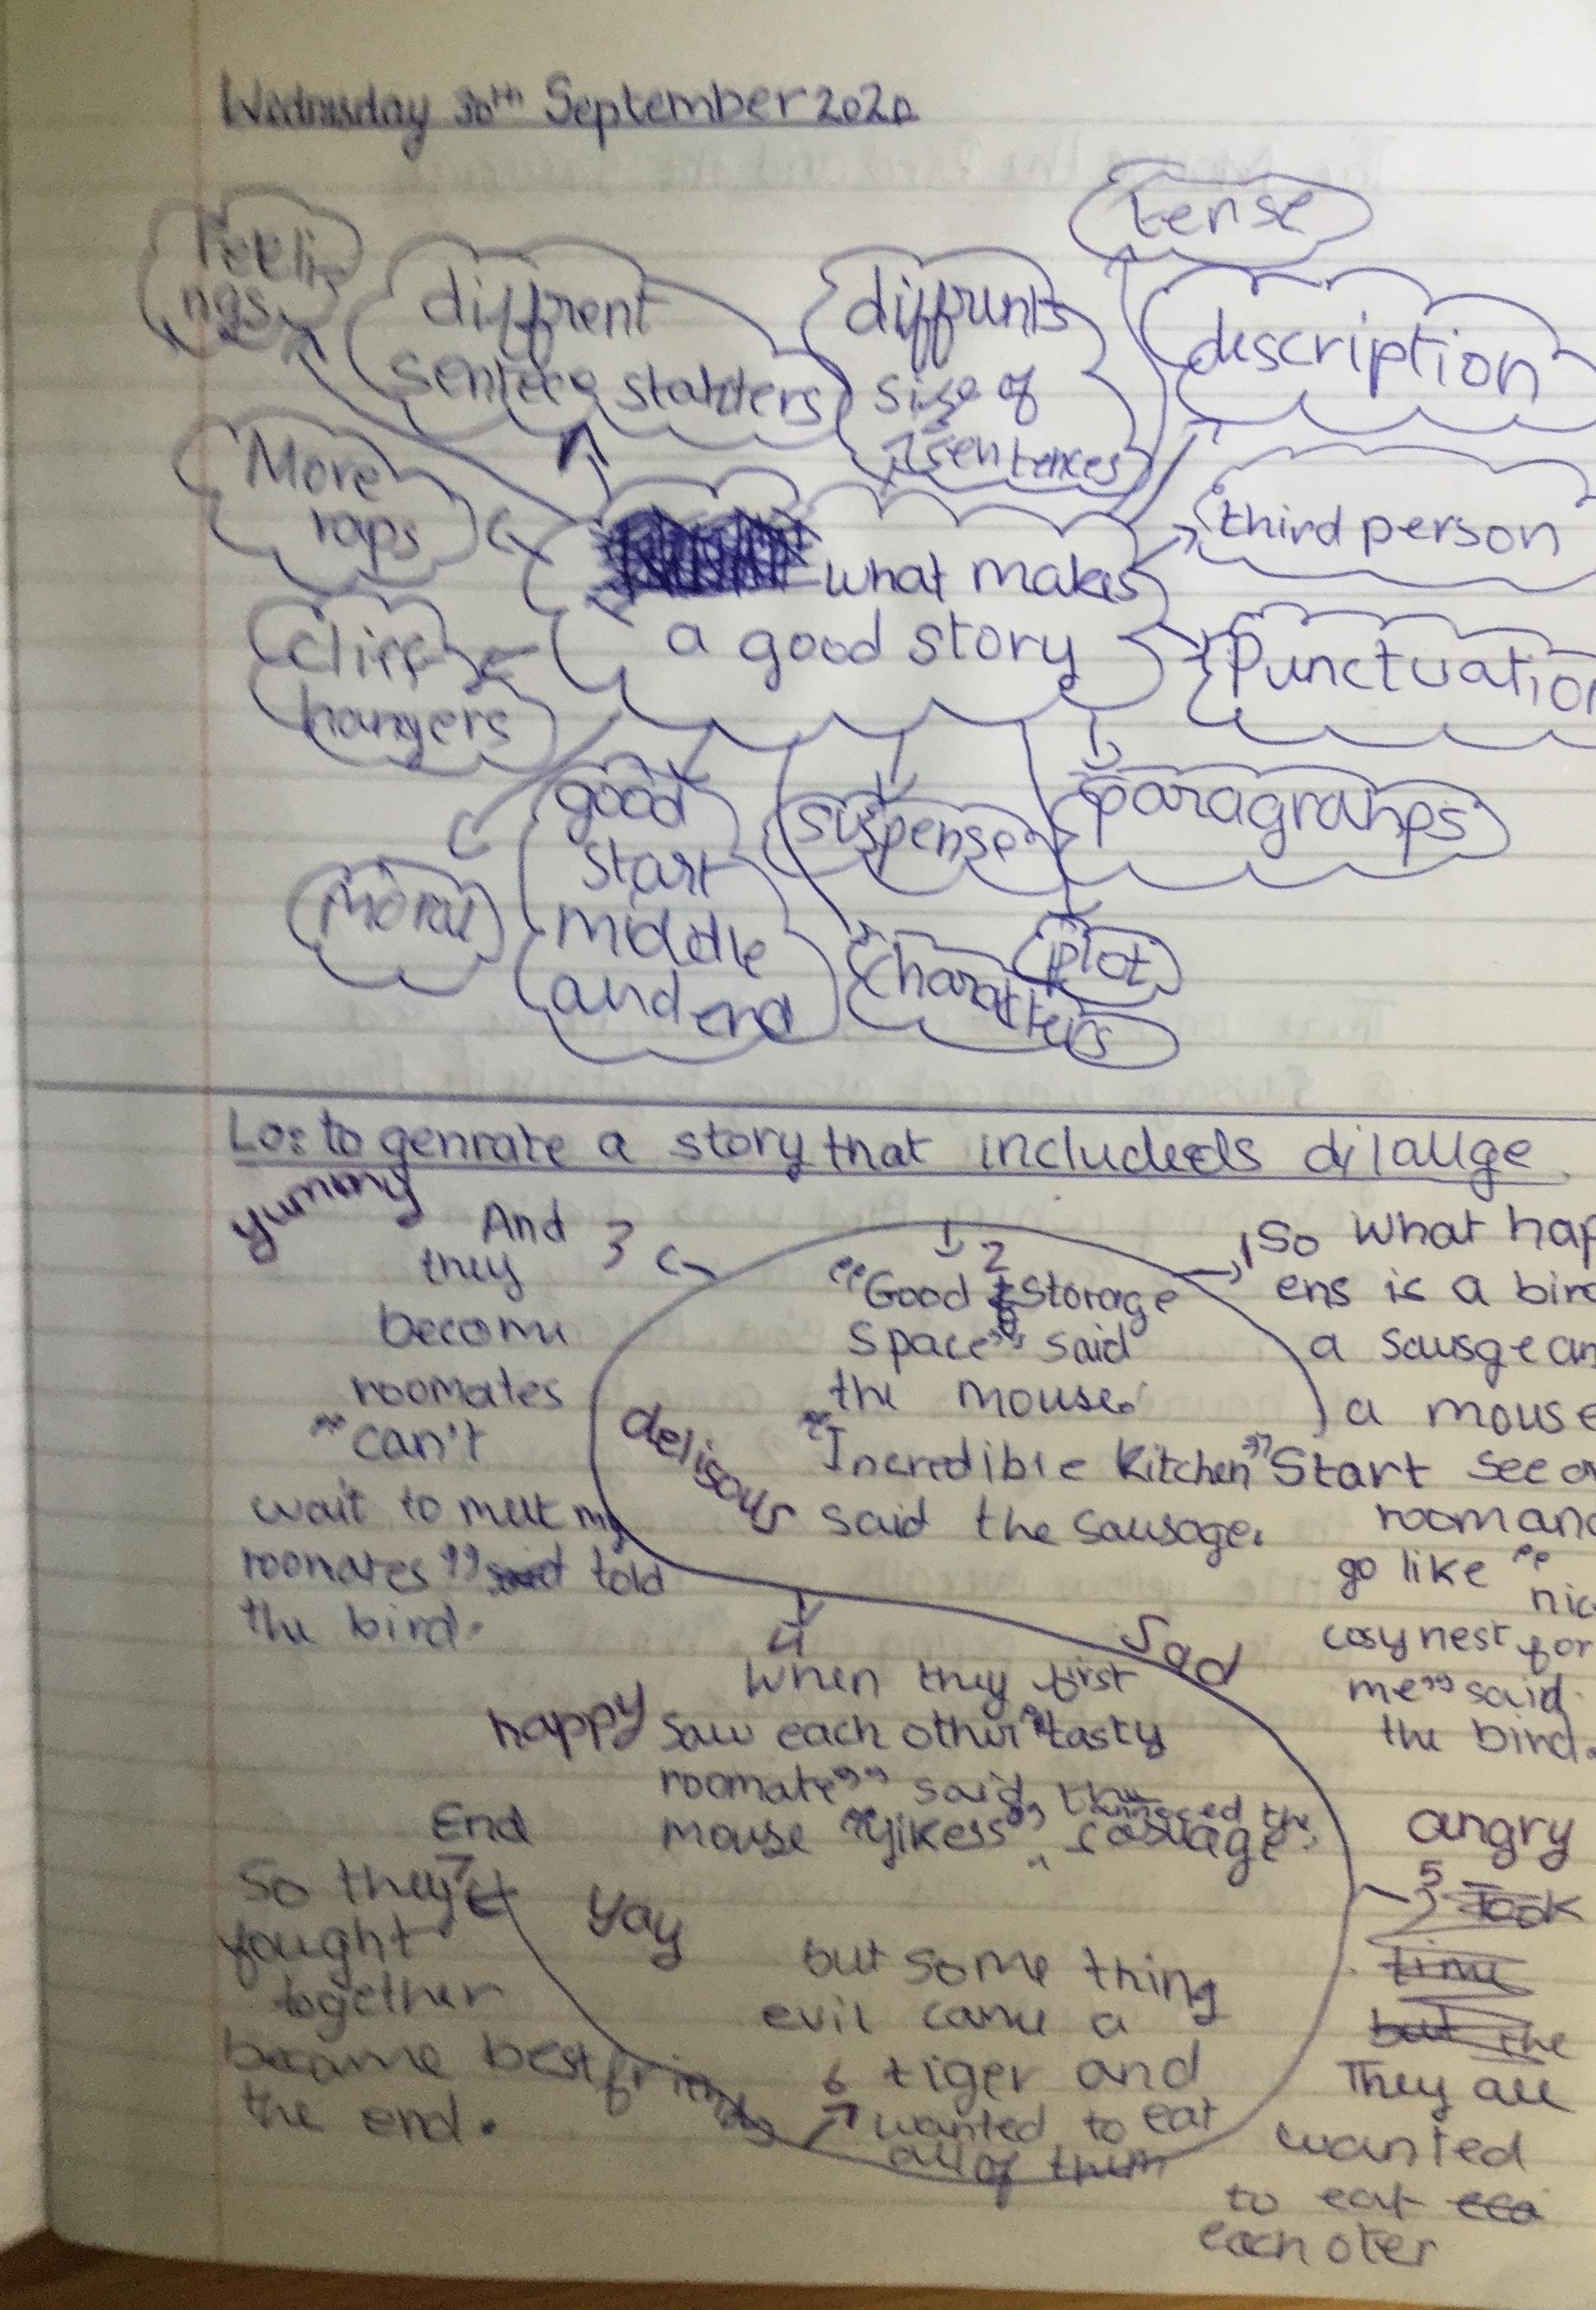 Wednesday 30th September 2020
tense
Feeli
ngs
diffrent
sentece statrters
diffrunts
size of
sentences
description
More
raps
third person
what makes
a good story
Punctuation
Cliff
hangers
good
start
middle
and end
suspense
paragrahps
Moral
Charatters
plot
Lo: to genrate a story that includeds dilauge
yummy
1 So what hap
ens is a bird
a sausge an
a mouse
Start see
room and
go like "
nic
cosy nest for
me" said
the bird.
2
"Good storage
space" said
the mouse.
"Incredible Kitchen"
said the sausage.
3 And
they
become
roomates
"can't
wait to meet my
roomates" told
the bird.
delisous
4
When they first
saw each other "tasty
roomate" said the
mouse "yikess"
sad
happy
angry
5 Took
time
but the
They all
wanted
to eat
each oter
but some thing
evil came a
6 tiger and
wanted to eat
all of them
yay
End
7
So they
fought
together
became best friends
the end.